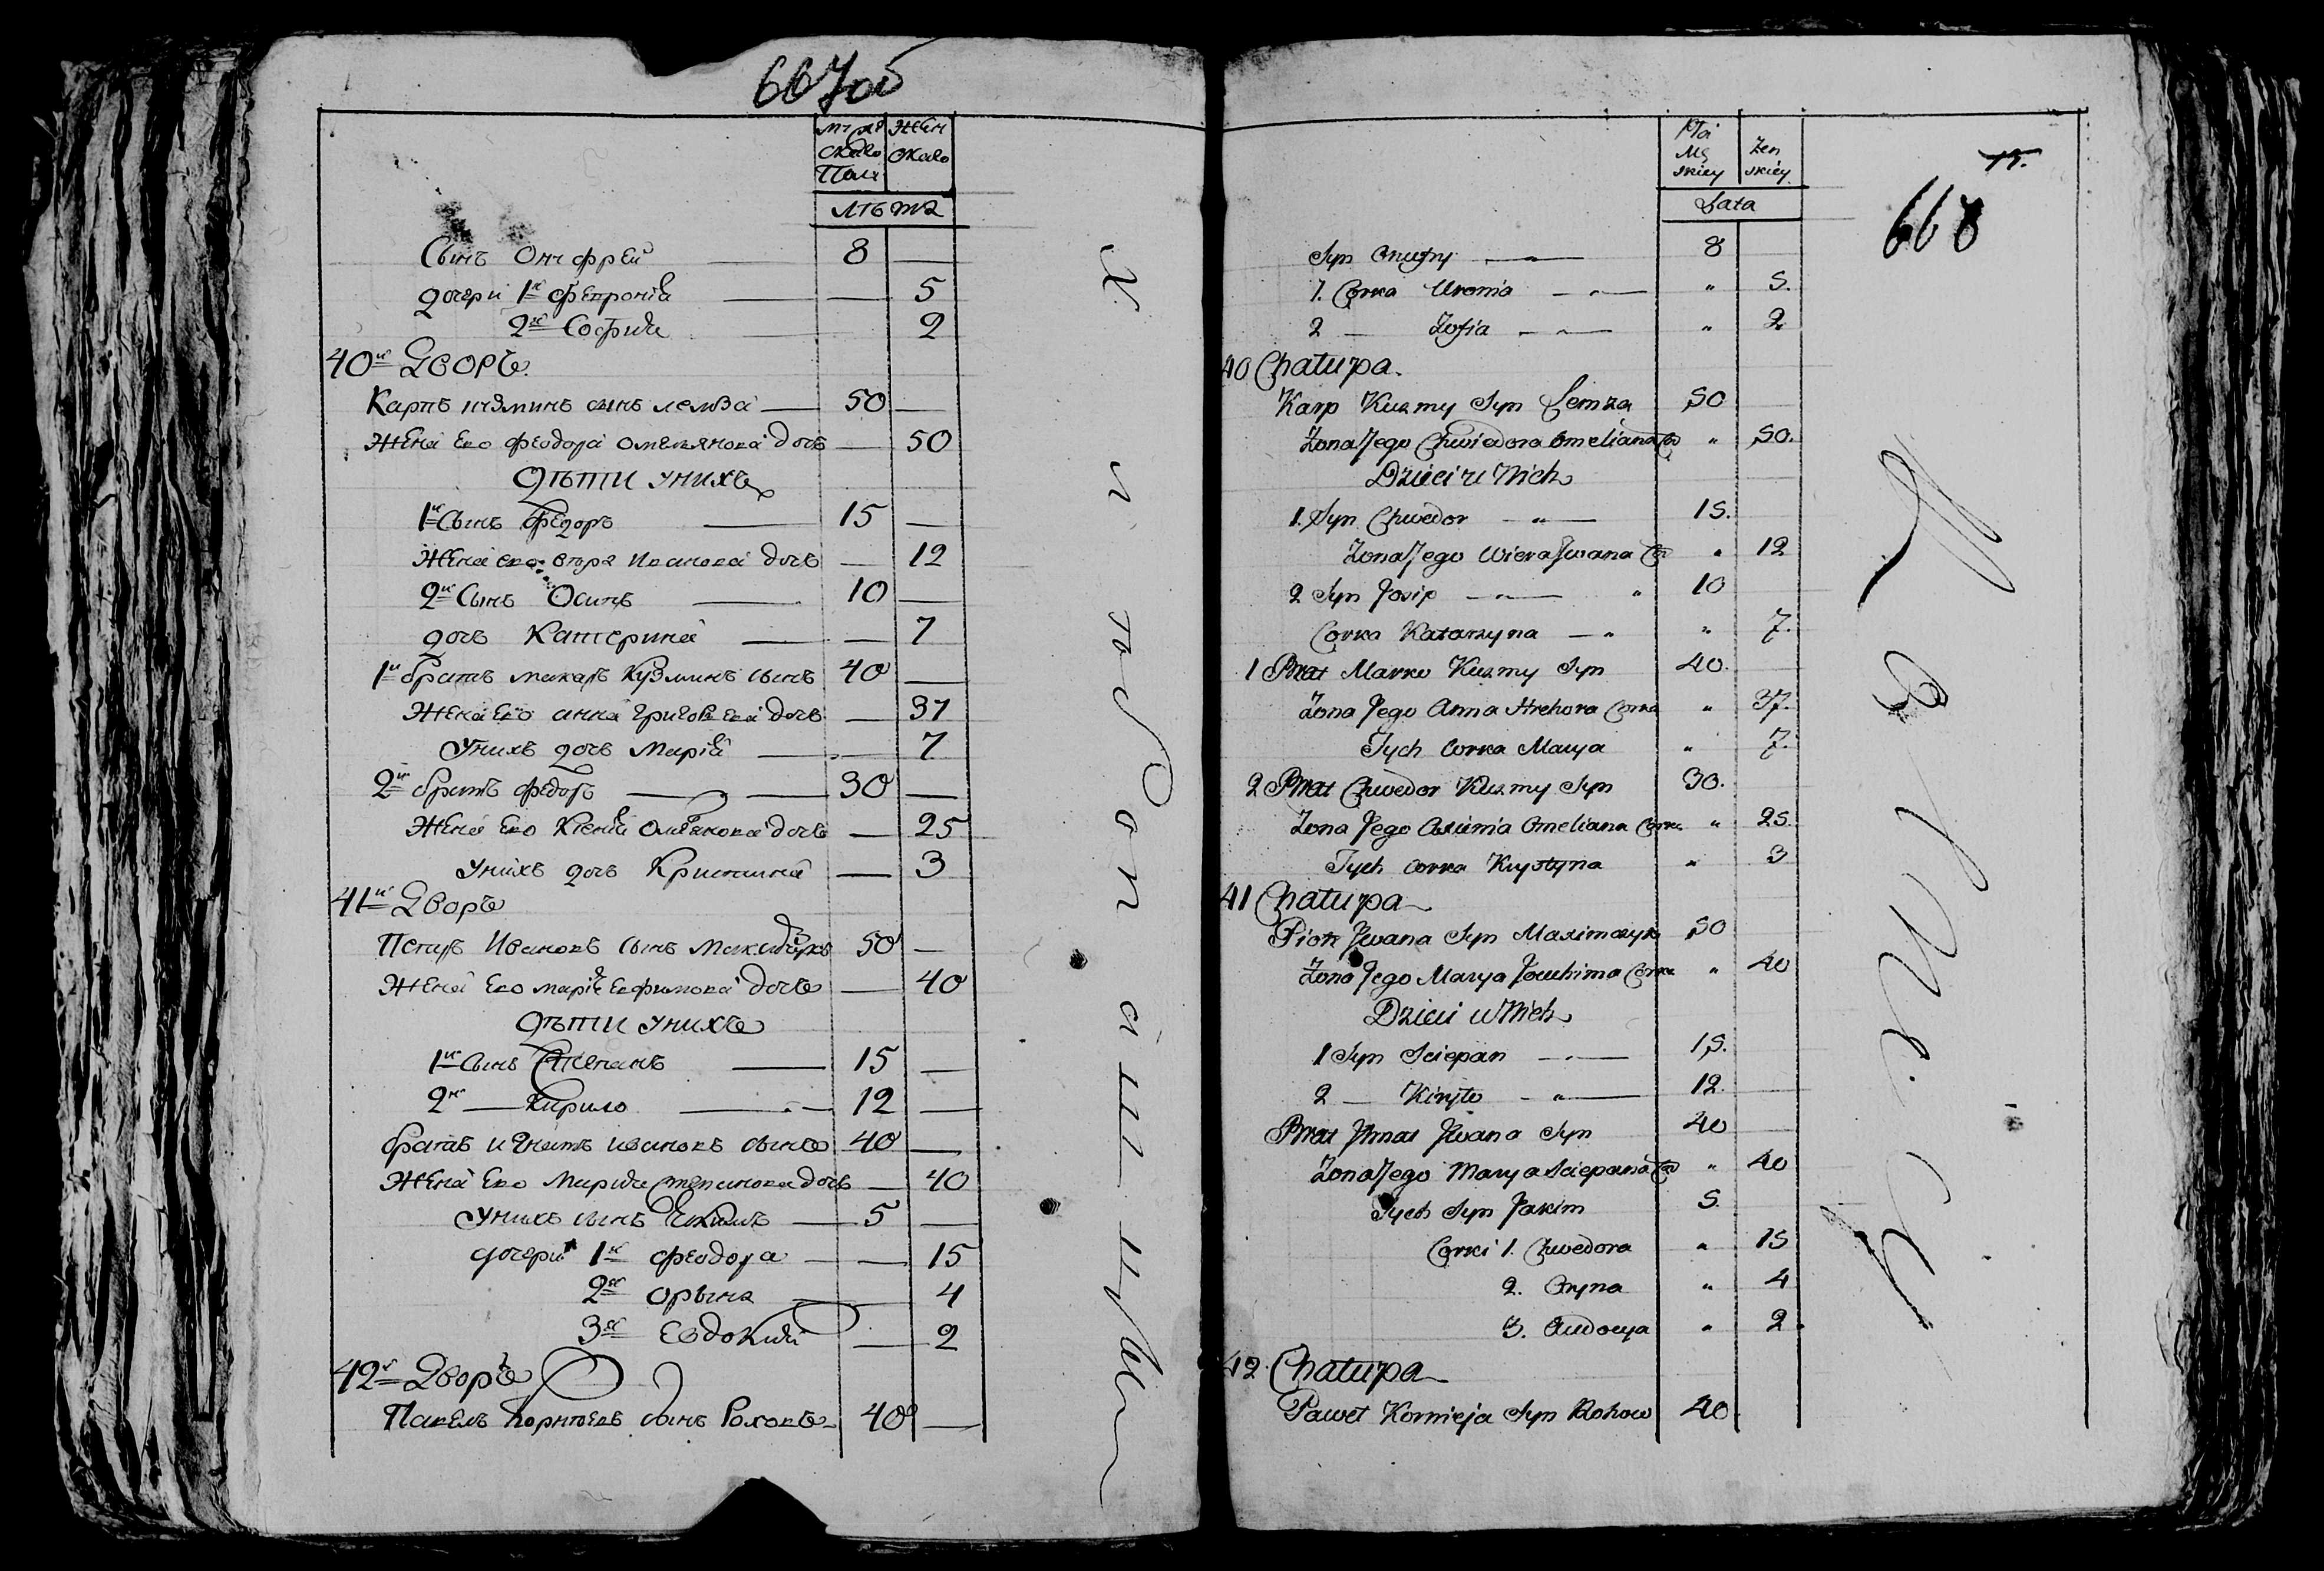 667об
Муже Жен
скаго скаго
Пола
лѣта
Сынъ Онофрей 8
дочери 1я Февронія 5
2я Софія 2
40й Дворъ
Карпъ сынъ лемза 50
Жена Его Феодора Омельянова дочь 50
Дѣти у нихъ
1й Сынъ Федоръ 15
Жена его Вѣра Иванова дочь 12
2й Сынъ Осипъ 10
дочь Катерина 7
1й братъ макаръ Кузминъ сынъ 40
Жена Его анна Григорьева дочь 37
У нихъ дочь Марія 7
2й братъ Федоръ 30
Жена Его Ксенія Омелянова дочь 25
У нихъ дочь Кристина 3
41й Дворъ
Петръ Ивановъ сынъ 50
Жена Его марія Ефимова дочь 40
Дѣти у нихъ
1й Сынъ Степанъ 15
2й — Кирило 12
братъ Игнатъ ивановъ сынъ 40
Жена Его Марія Степанова дочь 40
У нихъ сынъ 5
дочери 1я Феодора 15
2я Орына 4
3я Евдокия 2
42й Дворъ
Павелъ Корнѣевъ сынъ Роховъ 40
Płci
Mę Żen
skiey skiey
Lata
15.
668
Syn Onufry 8
1. Corka Uronia " 5.
2 — Zofia " 2
40 Chałupa.
Karp Kuzmy Syn Lemza 50
Zona Jego Chwiedora Omeliana Co " 50.
Dzieci u Nich
1. Syn Chwedor " 15.
Zona Jego Wiera Jwana Co " 12
2 Syn Josip " 10
Corka Katarzyna " " 7.
1 Brat Marko Kuzmy Syn 40.
Zona Jego Anna Hrehora Corka " 37.
Tych Corka Marya " 7.
2 Brat Chwedor Kuzmy Syn 30.
Zona Jego Axienia Omeliana Corka " 25.
Tych Corka Krystyna " 3
41 Chałupa
Piotr Jwana Syn Maximczyk 50
Zona Jego Marya Jouchima Corka " 40
Dzieci u Nich
1 Syn Sciepan 15.
2 — Kiryło " 12.
Brat Jhnat Jwana Syn 40
Zona Jego Marya Sciepana Co " 40
Tych Syn Jakim 5.
Corki 1. Chwedora " 15
2. Oryna " 4
3. Audocya " 2.
42. Chałupa
Paweł Kornieja Syn Rohow 40.